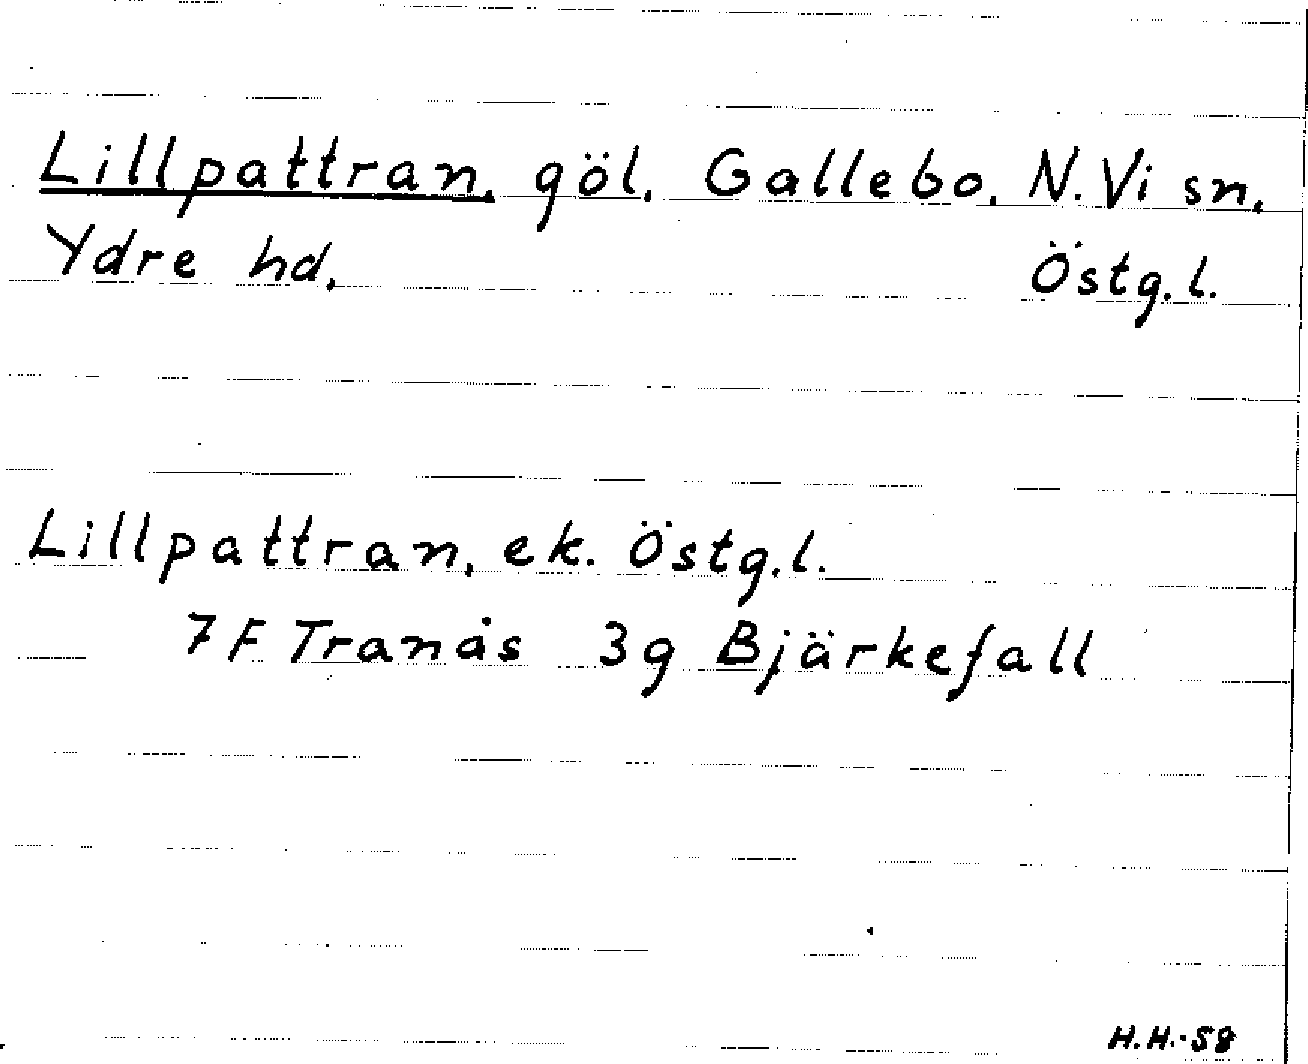 Lillpattran, göl, Gallebo, N. Vi sn,
Ydre hd, Östg. l.
Lillpattran, ek. Östg. l.
7 F Tranås 3g Bjärkefall
H.H.-58